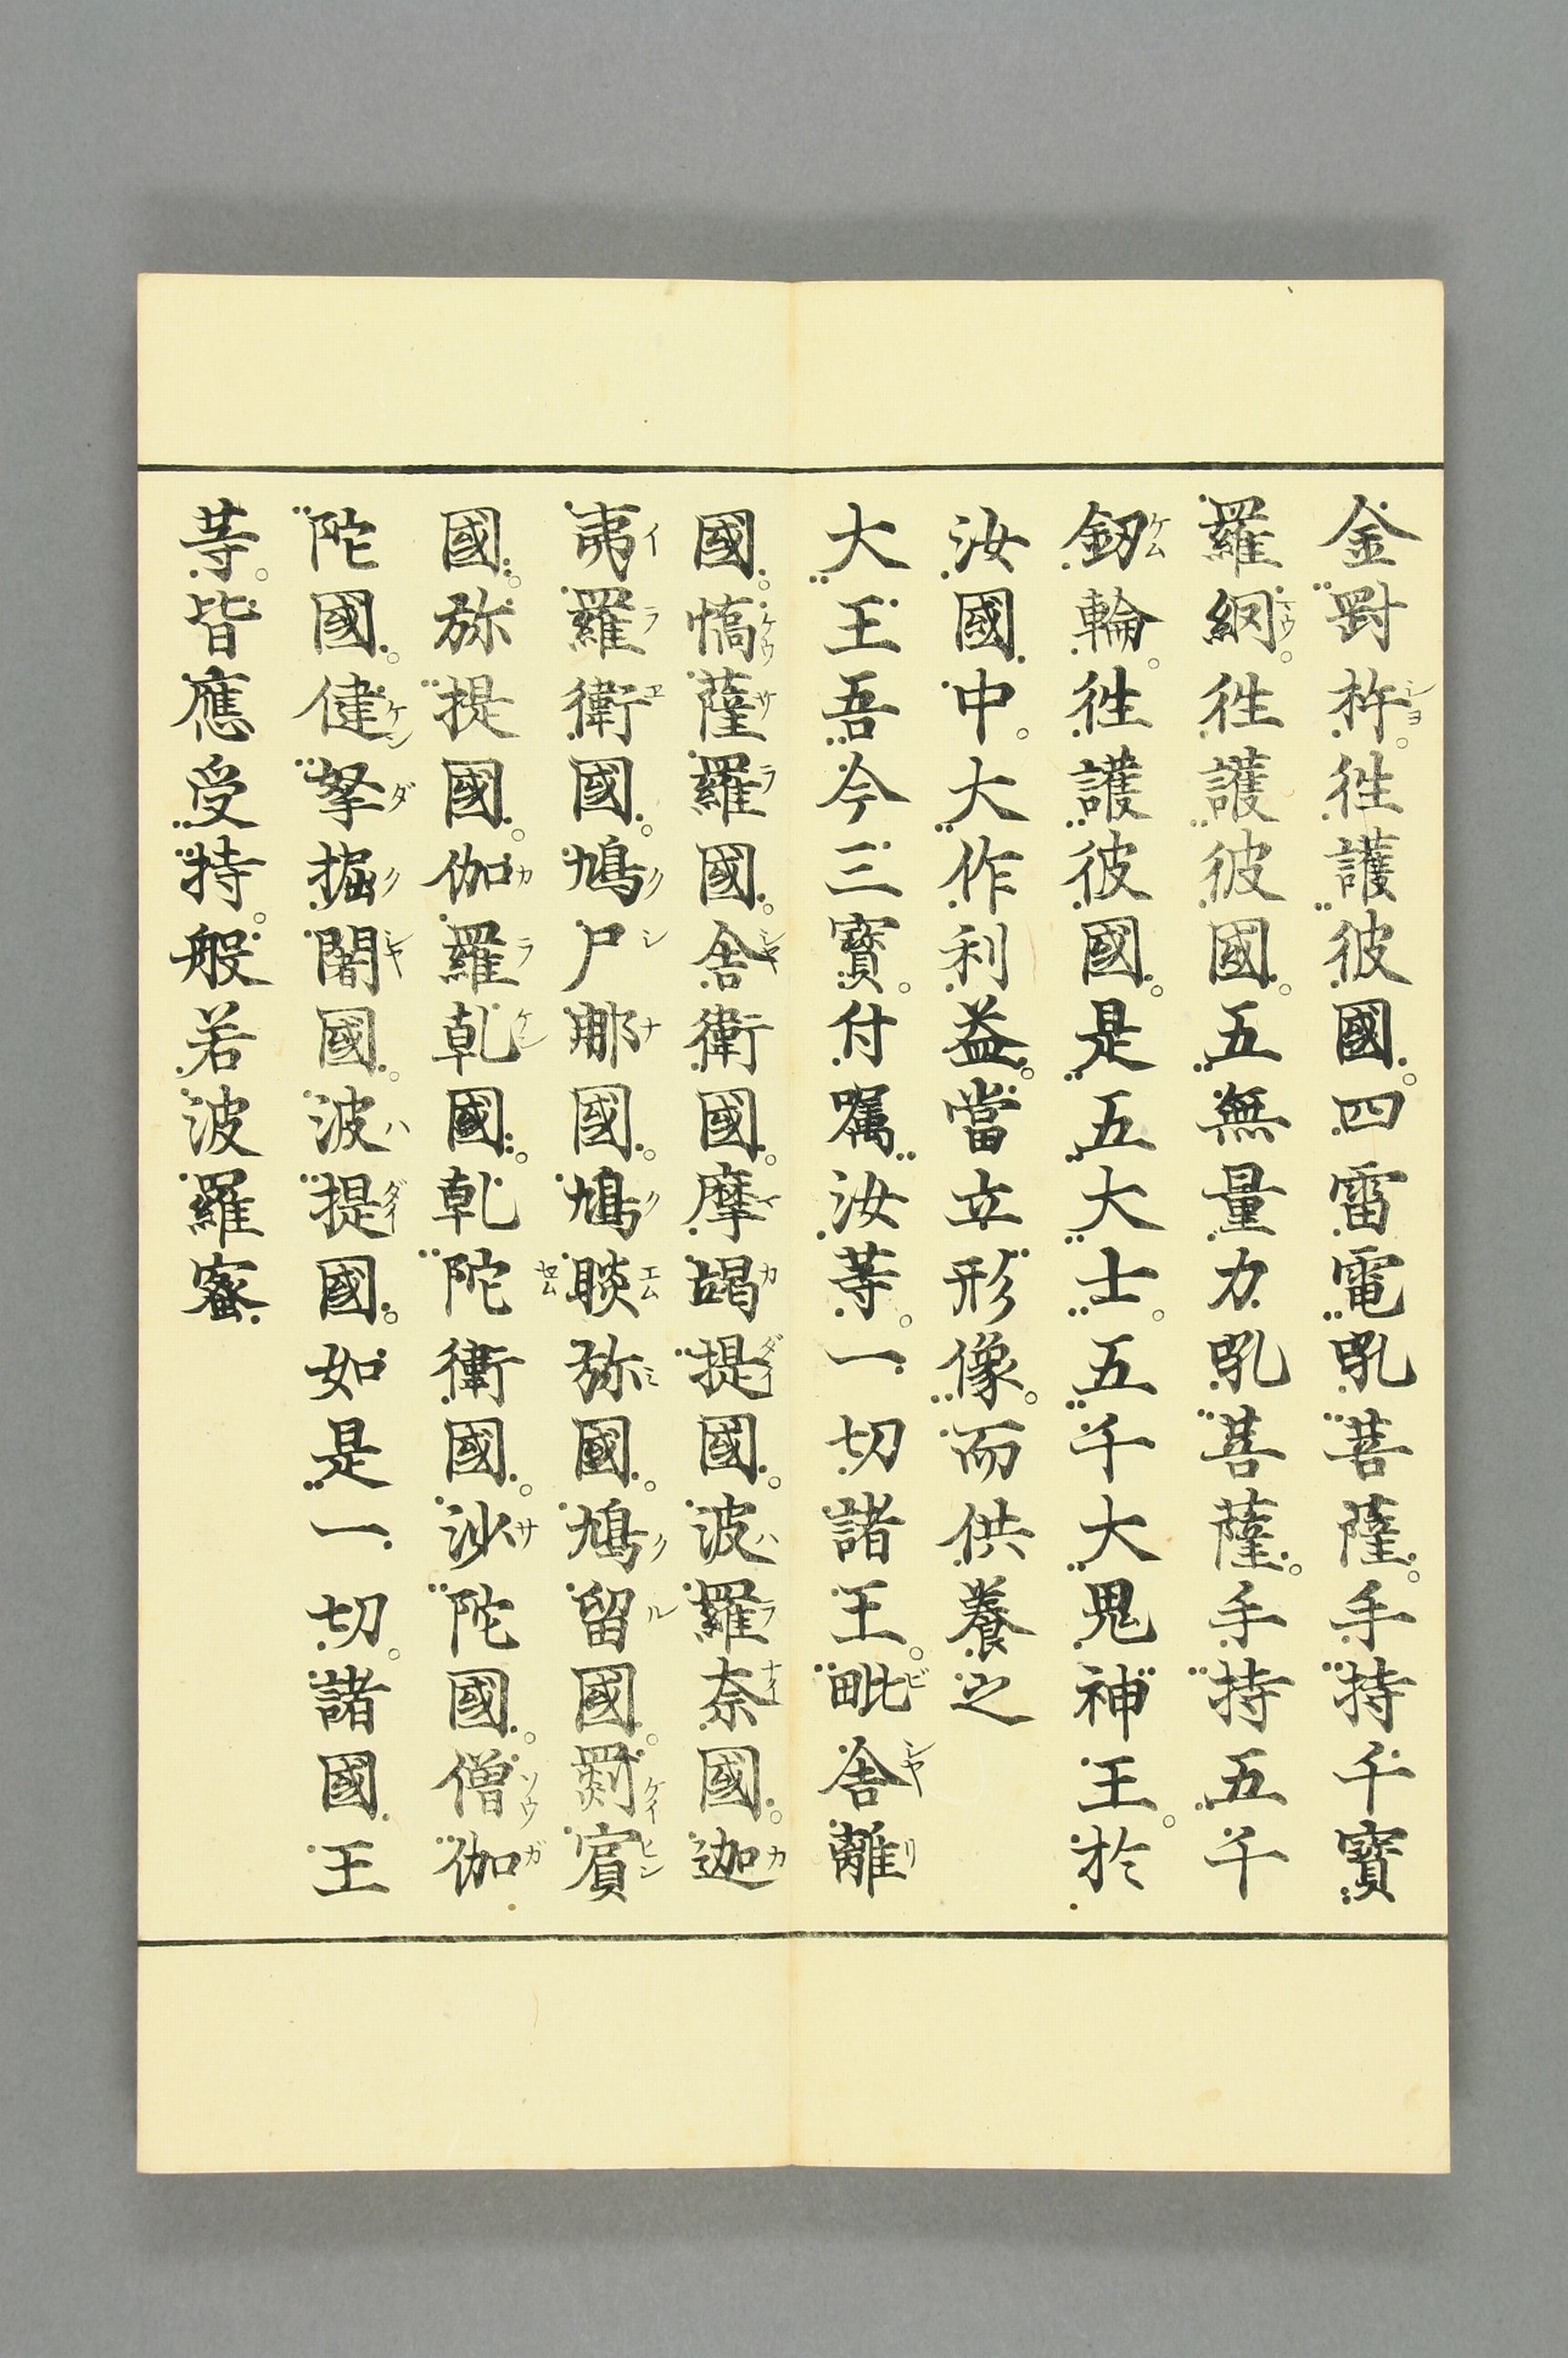 金剛杵。徃護彼國。四雷電吼菩薩。手持千寳
羅網。徃護彼國。五無量力吼菩薩。手持五千
釼輪。徃護彼國。是五大士。五千大鬼神王。於
汝國中。大作利益。當立形像。而供養之
大王吾今三寳。付嘱汝等。一切諸王。毗舍離
國。憍薩羅國。舍衛國。摩竭提國。波羅奈國。迦
夷羅衛國。鳩尸那國。鳩睒弥國。鳩留國。罽賔
國。弥提國。伽羅乹國。乹陀衛國。沙陀國。僧伽
陀國。健拏掘闍國。波提國。如是一切。諸國王
等。皆應受持。般若波羅蜜